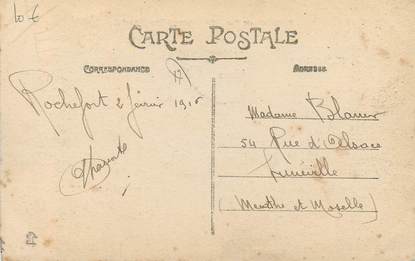 10 €
CARTE POSTALE
CORRESPONDANCE
ADRESSE
Rochefort 2 février 1916
Madame
54 Rue d'Alsace
Lunéville
(Meurthe et Moselle)